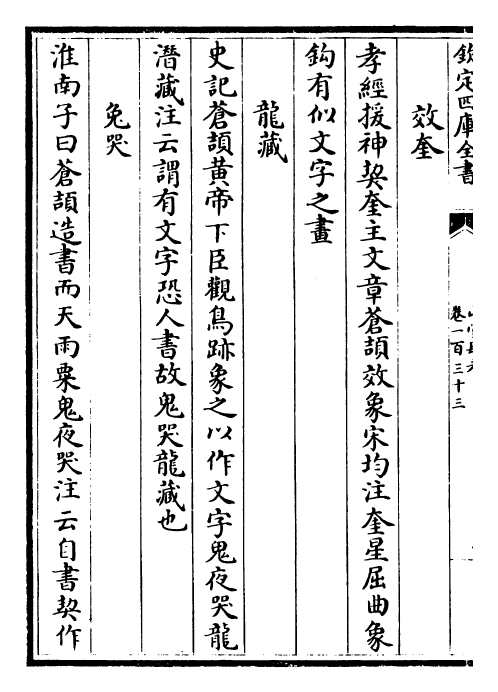 欽定四庫全書
卷一百三十三
效奎
孝經援神契奎主文章蒼頡效象宋均注奎星屈曲象
鈎有似文字之畫
龍藏
史記蒼頡黄帝下臣觀鳥跡象之以作文字鬼夜哭龍
潛藏注云謂有文字恐人書故鬼哭龍藏也
兔哭
淮南子曰蒼頡造書而天雨粟鬼夜哭注云自書契作